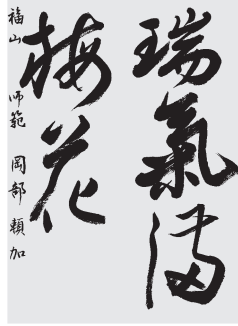 瑞氣満
梅花
福山 師範 岡部 頼加